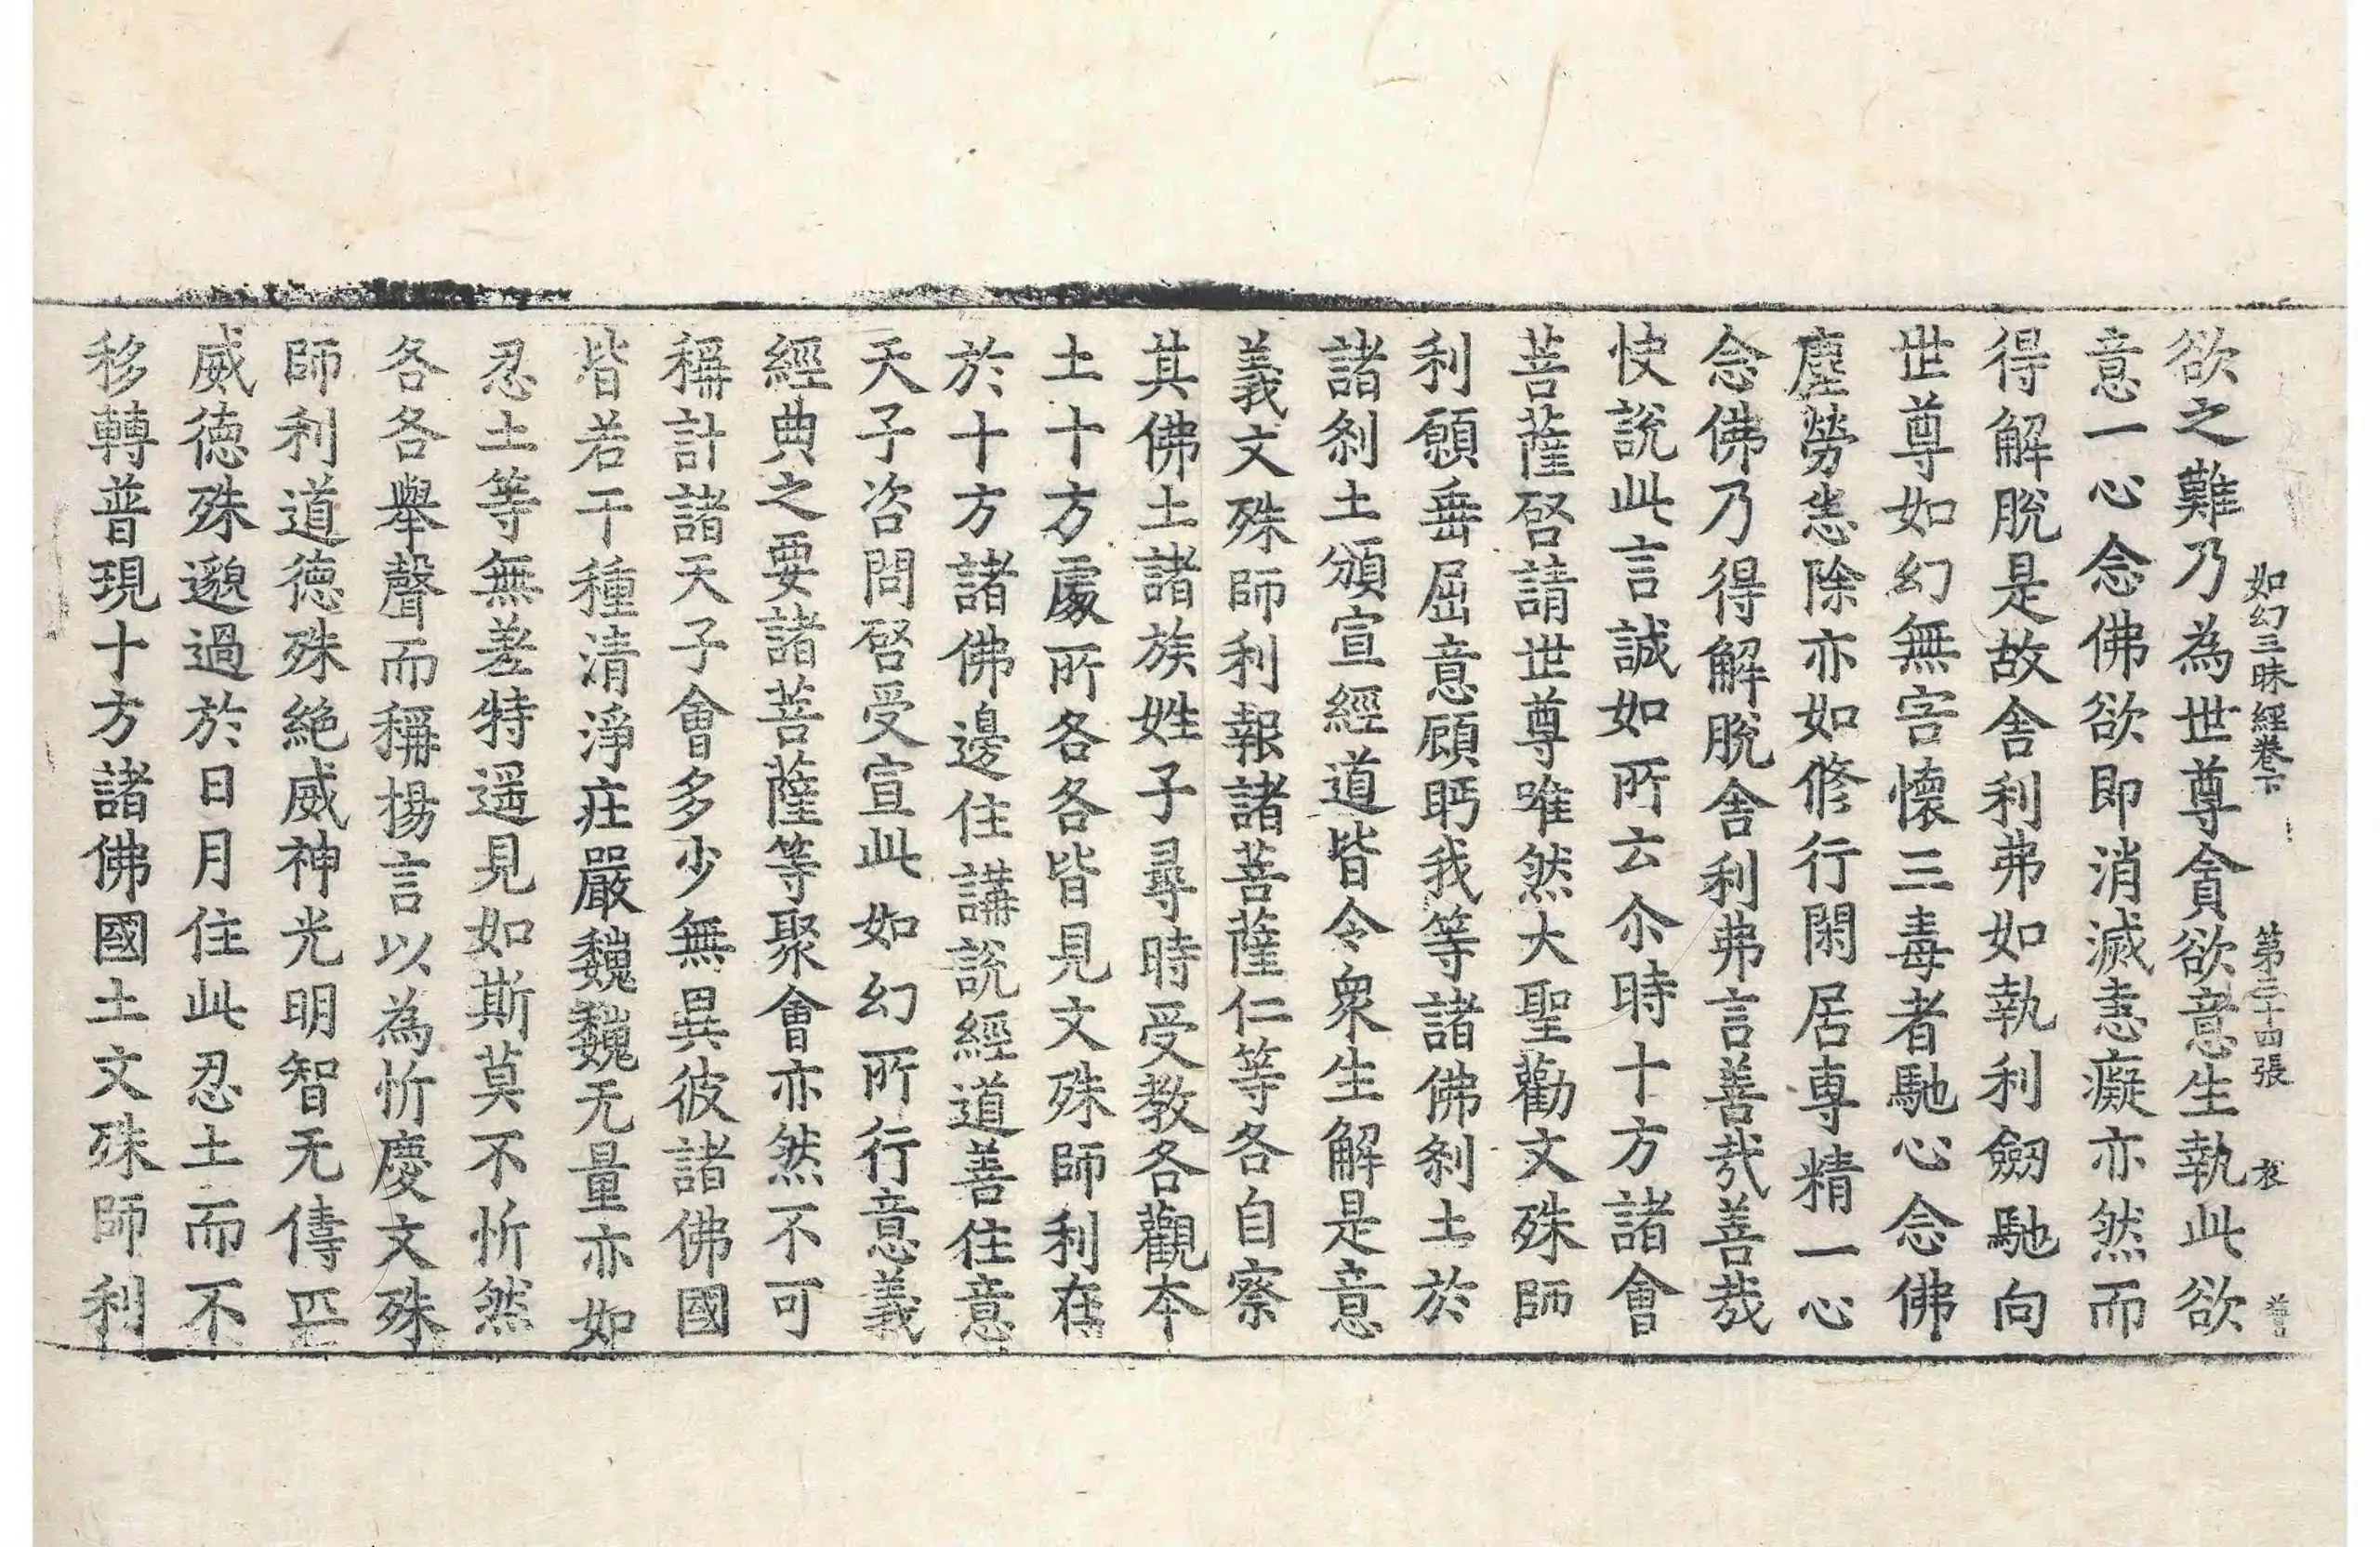 如幻三昧經卷下 第三十四張 衣
欲之難乃為世尊貪欲意生執此欲
意一心念佛欲即消滅恚癡亦然而
得解脫是故舍利弗如執利劔馳向
世尊如幻無害懷三毒者馳心念佛
塵勞恚除亦如修行閑居專精一心
念佛乃得解脫舍利弗言善哉善哉
快說此言誠如所云尒時十方諸會
菩薩啓請世尊唯然大聖勸文殊師
利願垂屈意顧眄我等諸佛剎土於
諸剎土頒宣經道皆令衆生解是意
義文殊師利報諸菩薩仁等各自察
其佛土諸族姓子尋時受教各觀本
土十方處所各各皆見文殊師利在
於十方諸佛邊住講說經道善住意
天子咨問啓受宣此如幻所行意義
經典之要諸菩薩等聚會亦然不可
稱計諸天子會多少無異彼諸佛國
皆若干種清淨莊嚴巍巍无量亦如
忍土等無差特遥見如斯莫不忻然
各各舉聲而稱揚言以為忻慶文殊
師利道德殊絶威神光明智无儔匹
威德殊邈過於日月住此忍土而不
移轉普現十方諸佛國土文殊師利